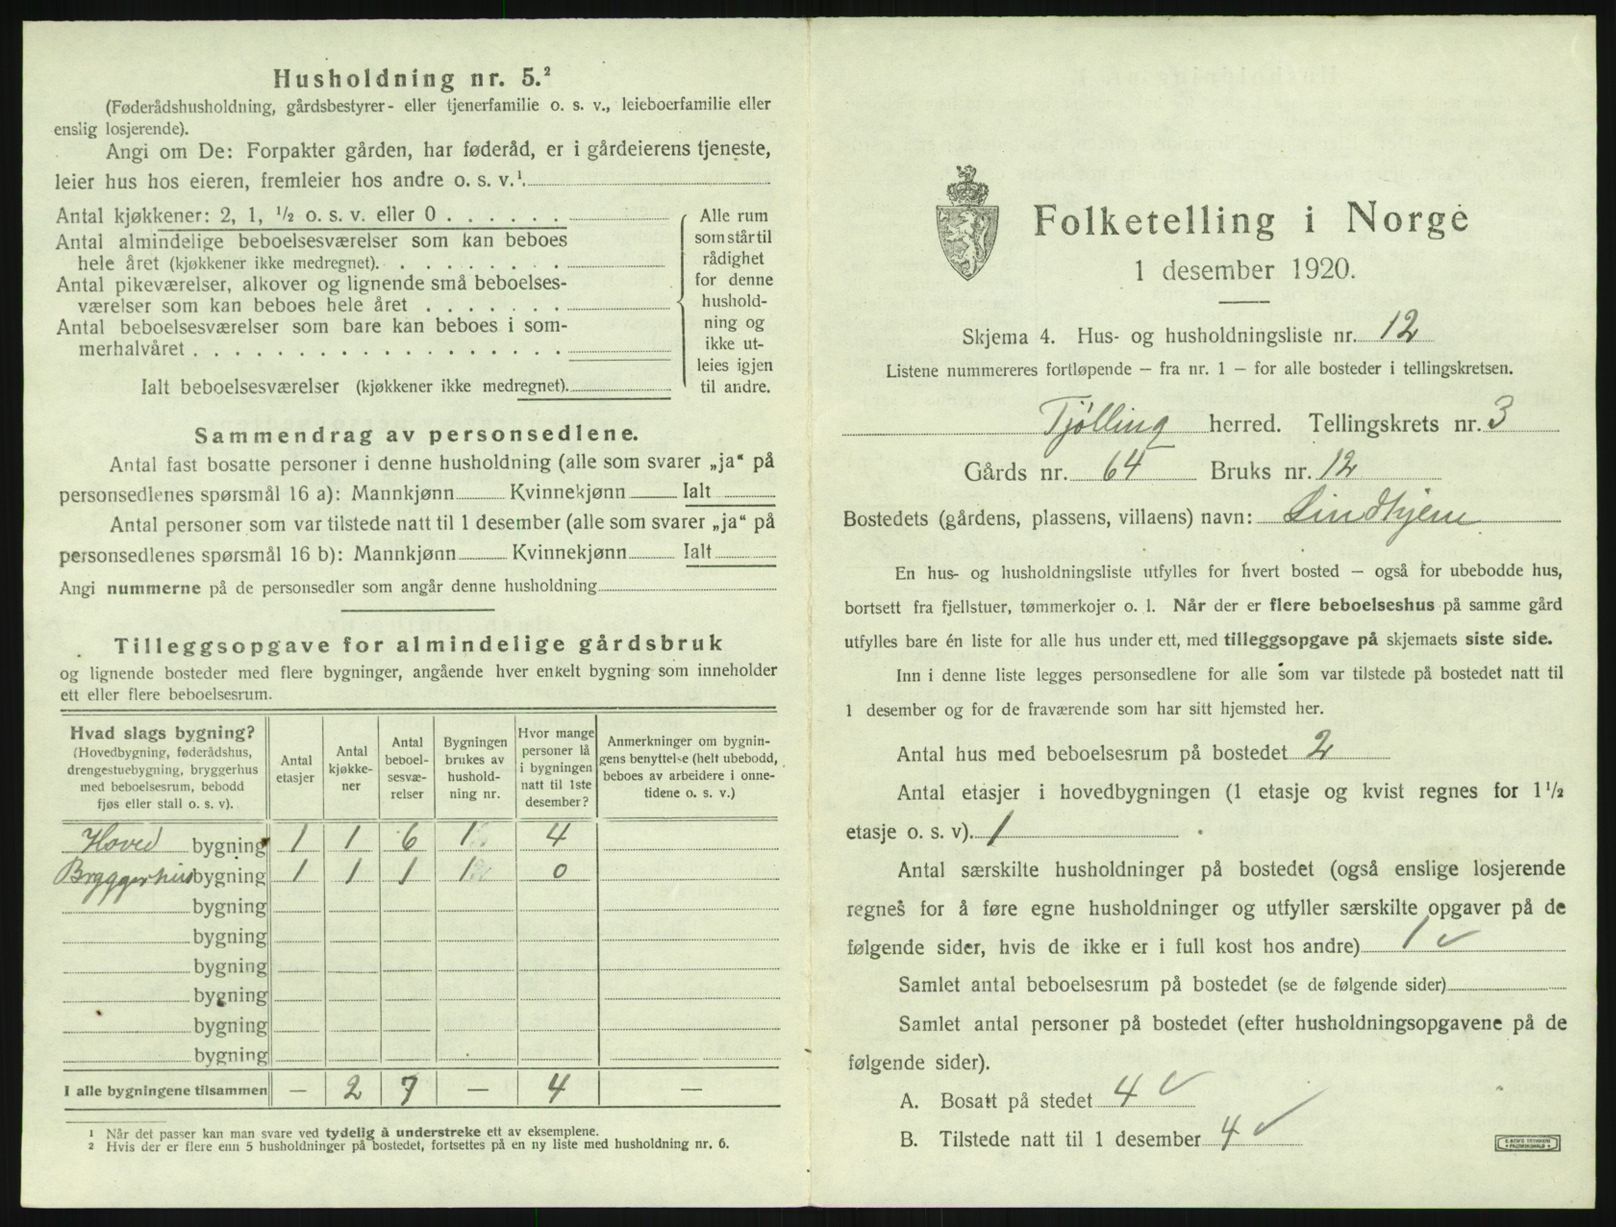 Husholdning nr. 5.²
(Føderådshusholdning, gårdsbestyrer- eller tjenerfamilie o. s. v., leieboerfamilie eller
enslig losjerende).
Angi om De: Forpakter gården, har føderåd, er i gårdeierens tjeneste,
leier hus hos eieren, fremleier hos andre o. s. v.¹
Antal kjøkkener: 2, 1, ½ o. s. v. eller 0 . . . . . .
Antal almindelige beboelsesværelser som kan beboes
hele året (kjøkkener ikke medregnet). . . . . . . . .
Antal pikeværelser, alkover og lignende små beboelses-
værelser som kan beboes hele året . . . . . . .
Antal beboelsesværelser som bare kan beboes i som-
merhalvåret . . . . . . . . . . . . . . . . . .
Ialt beboelsesværelser (kjøkkener ikke medregnet).
Alle rum
som står til
rådighet
for denne
hushold-
ning og
ikke ut-
leies igjen
til andre.
Sammendrag av personsedlene.
Antal fast bosatte personer i denne husholdning (alle som svarer „ja“ på
personsedlenes spørsmål 16 a): Mannkjønn Kvinnekjønn Ialt
Antal personer som var tilstede natt til 1 desember (alle som svarer „ja“ på
personsedlenes spørsmål 16 b): Mannkjønn Kvinnekjønn Ialt
Angi nummerne på de personsedler som angår denne husholdning
Tilleggsopgave for almindelige gårdsbruk
og lignende bosteder med flere bygninger, angående hver enkelt bygning som inneholder
ett eller flere beboelsesrum.
Hvad slags bygning?
(Hovedbygning, føderådshus,
drengestuebygning, bryggerhus
med beboelsesrum, bebodd
fjøs eller stall o. s. v).
Antal
etasjer
Antal
kjøkke-
ner
Antal
beboel-
sesvæ-
relser
Bygningen
brukes av
hushold-
ning nr.
Hvor mange
personer lå
i bygningen
natt til 1ste
desember?
Anmerkninger om bygnin-
gens benyttelse (helt ubebodd,
beboes av arbeidere i onne-
tidene o. s. v.)
Hoved bygning 1 1 6 1 4
Bryggerhus bygning 1 1 1 1 0
bygning
bygning
bygning
bygning
bygning
bygning
I alle bygningene tilsammen — 2 7 — 4 —
¹ Når det passer kan man svare ved tydelig å understreke ett av eksemplene.
² Hvis der er flere enn 5 husholdninger på bostedet, fortsettes på en ny liste med husholdning nr. 6.
Folketelling i Norge
1 desember 1920.
Skjema 4. Hus- og husholdningsliste nr. 12
Listene nummereres fortløpende — fra nr. 1 — for alle bosteder i tellingskretsen.
Tjølling herred. Tellingskrets nr. 3
Gårds nr. 64 Bruks nr. 12
Bostedets (gårdens, plassens, villaens) navn: Lindhjem
En hus- og husholdningsliste utfylles for hvert bosted — også for ubebodde hus,
bortsett fra fjellstuer, tømmerkojer o. l. Når der er flere beboelseshus på samme gård
utfylles bare én liste for alle hus under ett, med tilleggsopgave på skjemaets siste side.
Inn i denne liste legges personsedlene for alle som var tilstede på bostedet natt til
1 desember og for de fraværende som har sitt hjemsted her.
Antal hus med beboelsesrum på bostedet 2
Antal etasjer i hovedbygningen (1 etasje og kvist regnes for 1½
etasje o. s. v). 1
Antal særskilte husholdninger på bostedet (også enslige losjerende
regnes for å føre egne husholdninger og utfyller særskilte opgaver på de
følgende sider, hvis de ikke er i full kost hos andre) 1 ✓
Samlet antal beboelsesrum på bostedet (se de følgende sider)
Samlet antal personer på bostedet (efter husholdningsopgavene på de
følgende sider).
A. Bosatt på stedet 4 ✓
B. Tilstede natt til 1 desember 4 ✓